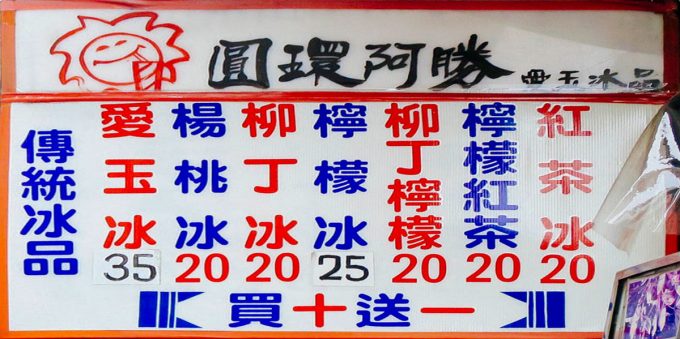 圓環阿勝 愛玉冰品
傳統冰品
愛玉冰 35
楊桃冰 20
柳丁冰 20
檸檬冰 25
柳丁檸檬 20
檸檬紅茶 20
紅茶冰 20
買十送一